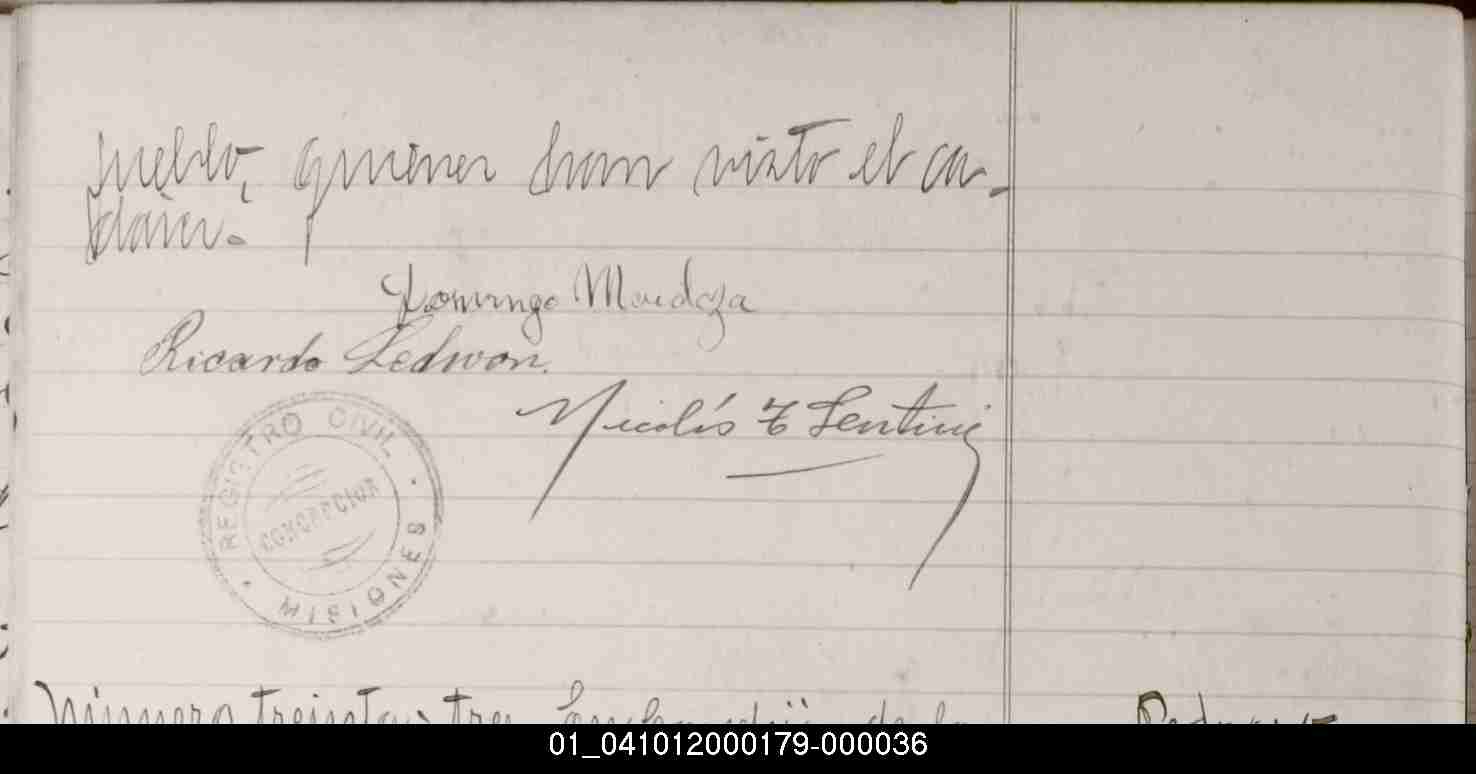 pueblo, quienes han visto el ca-
dáver.-
Domingo Mendoza
Ricardo Ledwon.
Nicolás T Sentini
REGISTRO CIVIL
CONCEPCION
MISIONES
Número treinta y tres
de la
01_041012000179-000036